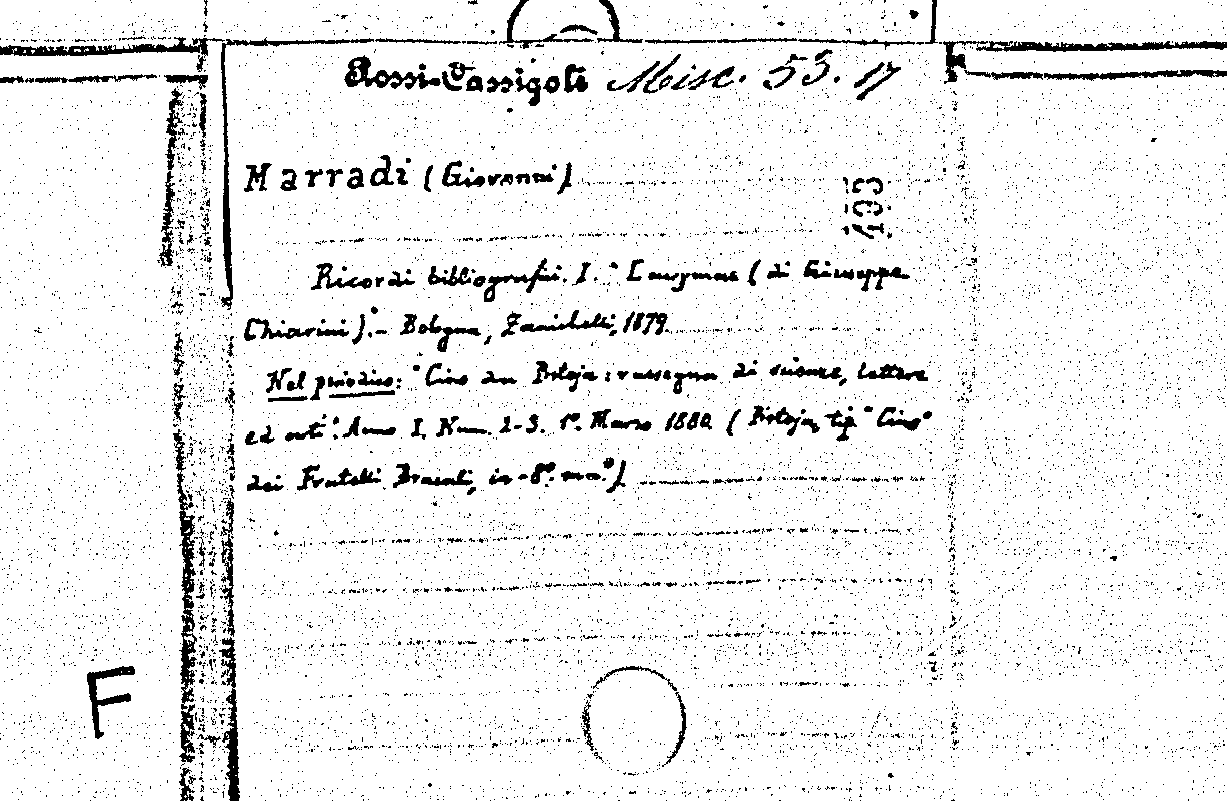 Rossi-Cassigoli Misc. 53. 17
Marradi (Giovanni)
193
Ricordi bibliografici. I. "Lacrymae (di Giuseppe
Chiarini)".- Bologna, Zanichelli, 1879.
Nel periodico: "Cino da Pistoja: rassegna di scienze, lettere
ed arti". Anno I, Num. 2-3. 1º. Marzo 1880. (Pistoja, tip "Cino"
dei Fratelli Bracali, in-8º.
F